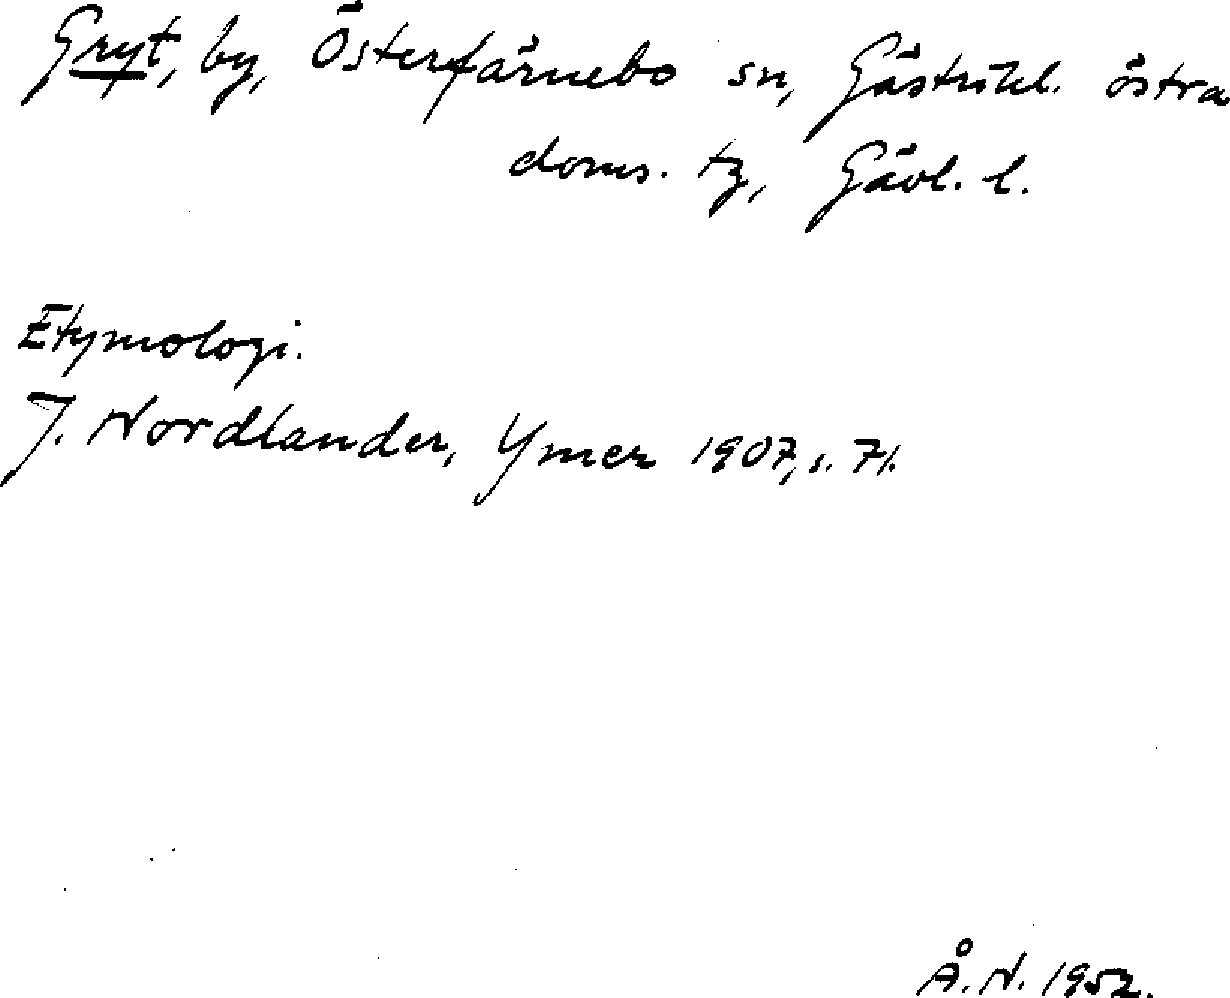 Gryt, by, Österfärnebo sn, Gästrikl. östra
doms. tg, Gävl. l.
Etymologi.
J. Nordlander, Ymer 1907, s. 71.
Å. N. 1952.